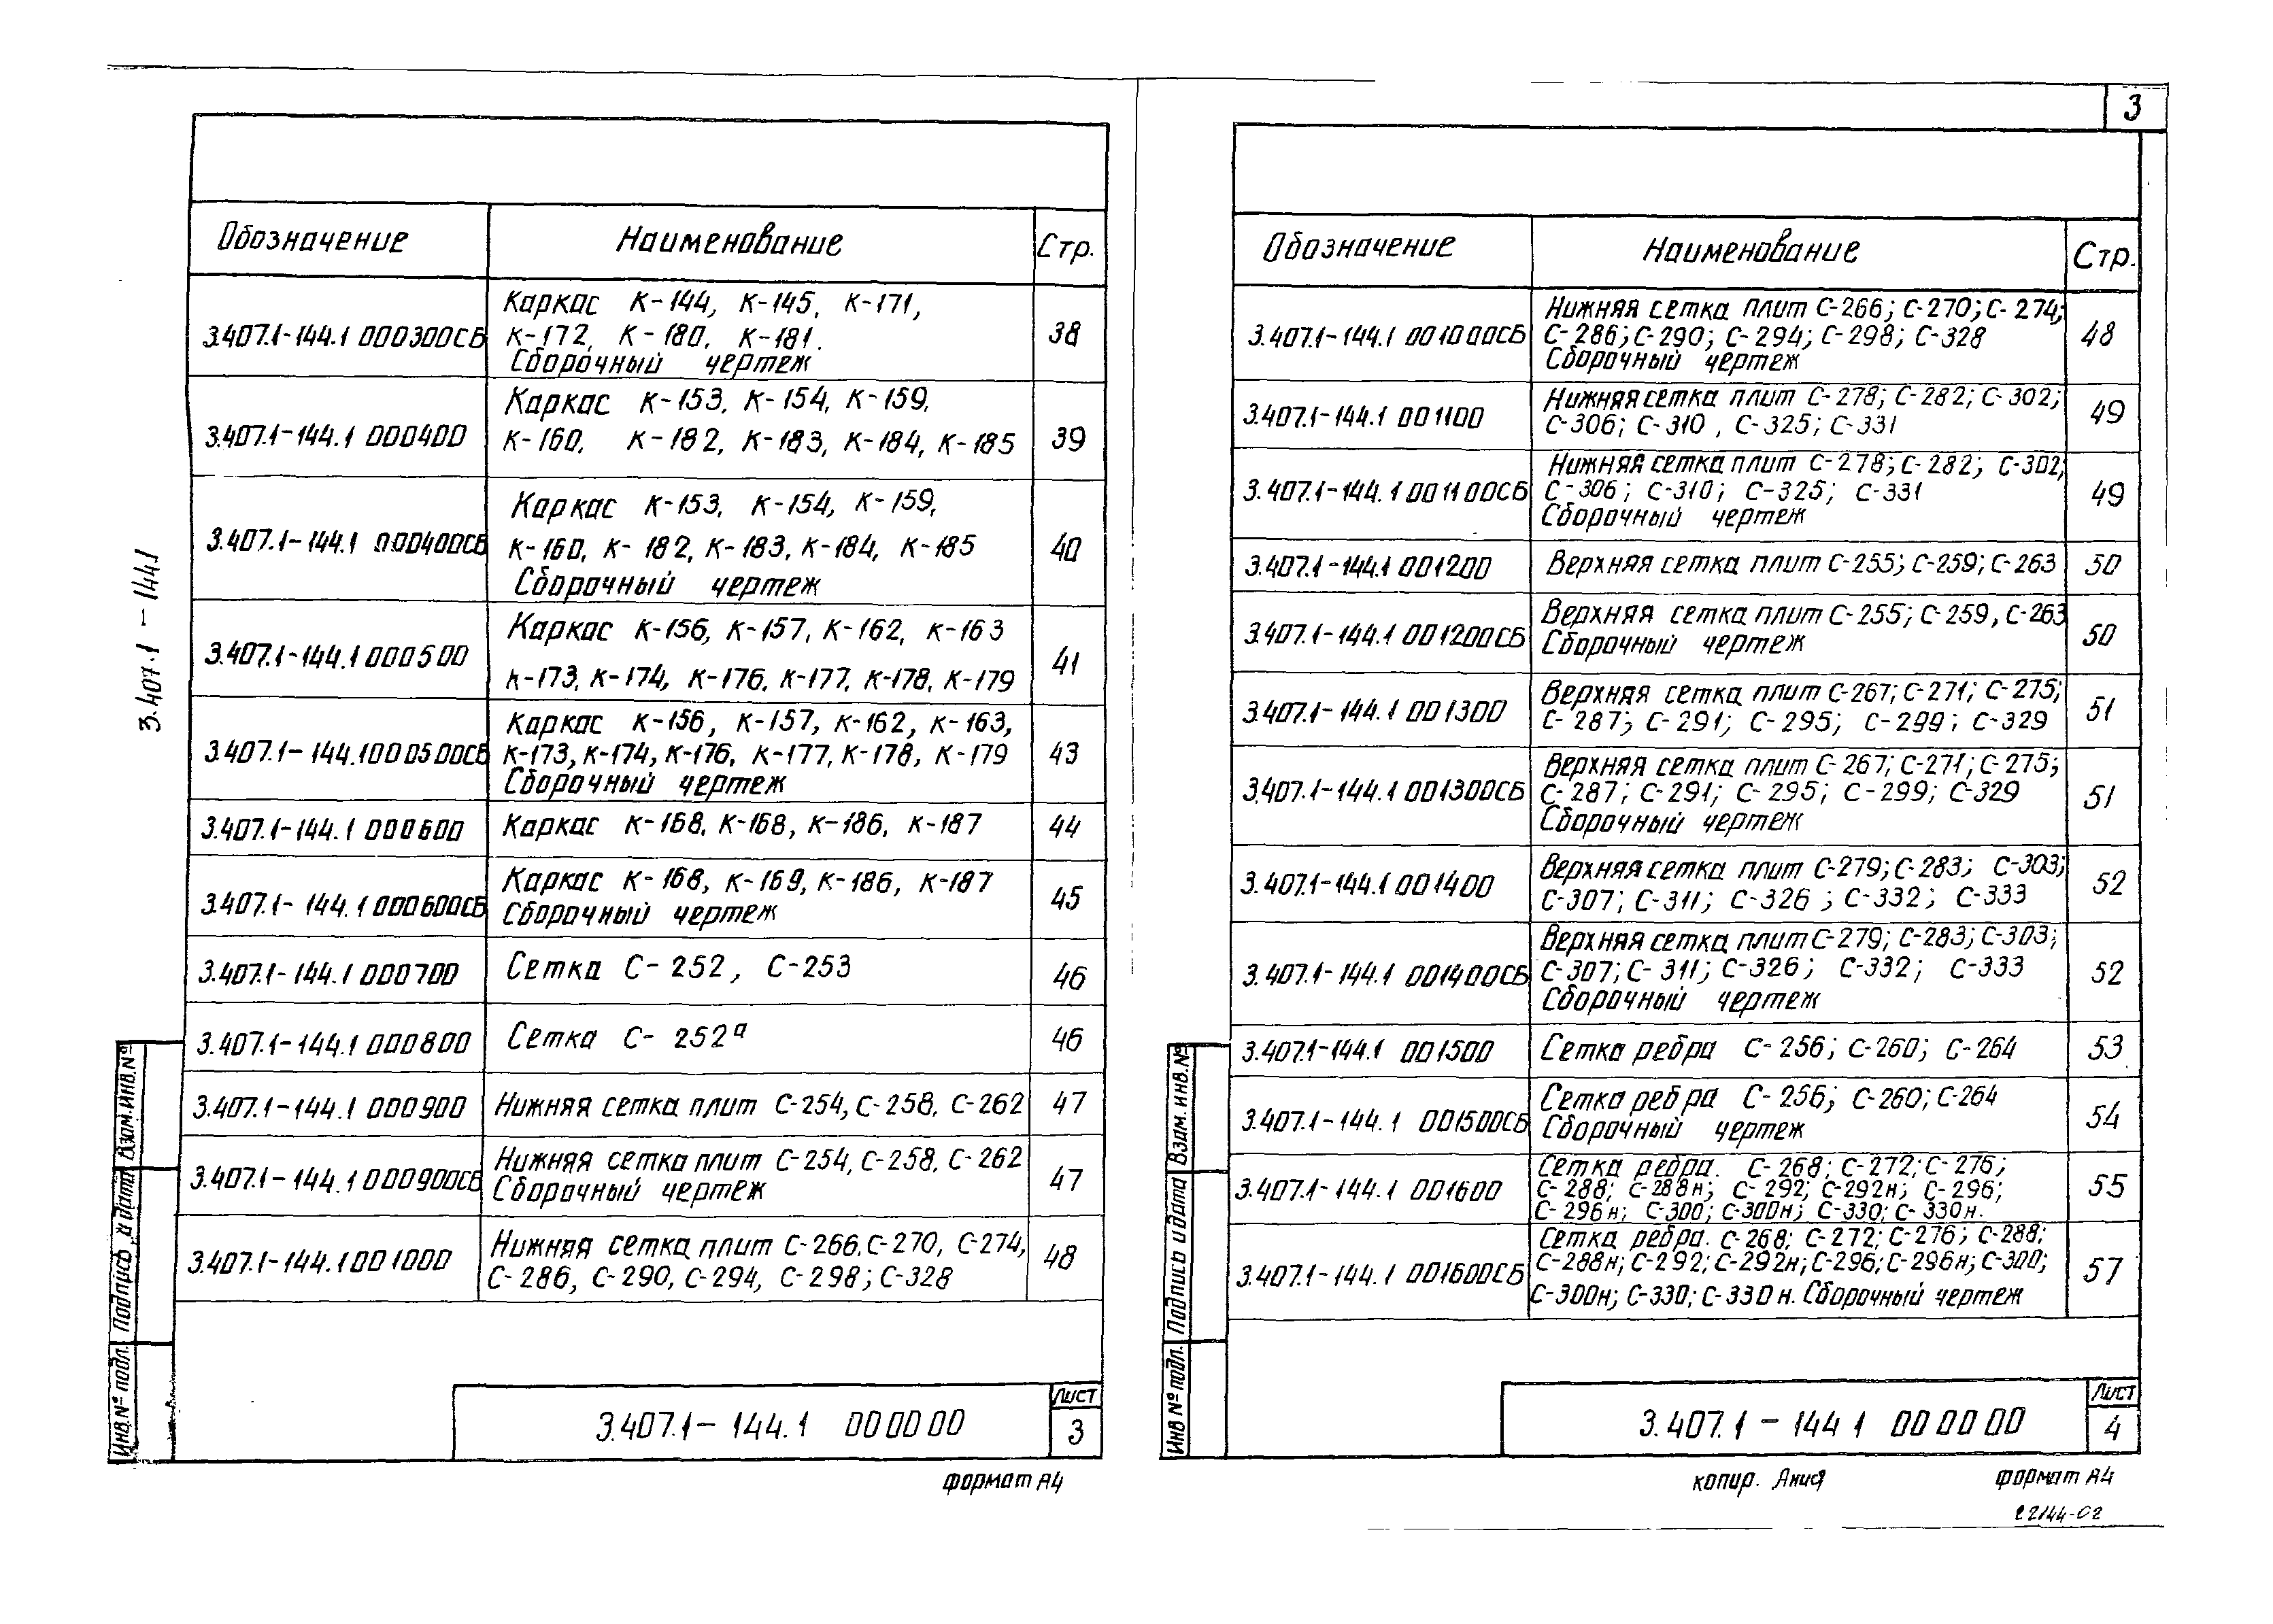 3
3.407.1-144.1
Обозначение Наименование Стр.
Каркас К-144, К-145, К-171,
3.407.1-144.1 000300СБ К-172, К-180, К-181. 38
Сборочный чертеж
Каркас К-153, К-154, К-159,
3.407.1-144.1 000400 К-160, К-182, К-183, К-184, К-185 39
Каркас К-153, К-154, К-159,
3.407.1-144.1 000400СБ К-160, К-182, К-183, К-184, К-185 40
Сборочный чертеж
Каркас К-156, К-157, К-162, К-163
3.407.1-144.1 000500 41
К-173, К-174, К-176, К-177, К-178, К-179
Каркас К-156, К-157, К-162, К-163,
3.407.1-144.1 000500СБ К-173, К-174, К-176, К-177, К-178, К-179 43
Сборочный чертеж
3.407.1-144.1 000600 Каркас К-168, К-168, К-186, К-187 44
Каркас К-168, К-169, К-186, К-187
3.407.1-144.1 000600СБ Сборочный чертеж 45
3.407.1-144.1 000700 Сетка С-252, С-253 46
3.407.1-144.1 000800 Сетка С-252а 46
3.407.1-144.1 000900 Нижняя сетка плит С-254, С-258, С-262 47
Нижняя сетка плит С-254, С-258, С-262
3.407.1-144.1 000900СБ Сборочный чертеж 47
Нижняя сетка плит С-266, С-270, С-274,
3.407.1-144.1 001000 С-286, С-290, С-294, С-298; С-328 48
Взам.инв.№
Подпись и дата
Инв.№ подл.
3.407.1-144.1 000000
Лист
3
формат А4
Обозначение Наименование Стр.
Нижняя сетка плит С-266; С-270; С-274;
3.407.1-144.1 001000СБ С-286; С-290; С-294; С-298; С-328 48
Сборочный чертеж
Нижняя сетка плит С-278; С-282; С-302;
3.407.1-144.1 001100 С-306; С-310, С-325; С-331 49
Нижняя сетка плит С-278; С-282; С-302;
3.407.1-144.1 001100СБ С-306; С-310; С-325; С-331 49
Сборочный чертеж
3.407.1-144.1 001200 Верхняя сетка плит С-255; С-259; С-263 50
Верхняя сетка плит С-255; С-259, С-263
3.407.1-144.1 001200СБ Сборочный чертеж 50
Верхняя сетка плит С-267; С-271; С-275;
3.407.1-144.1 001300 С-287; С-291; С-295; С-299; С-329 51
Верхняя сетка плит С-267; С-271; С-275;
3.407.1-144.1 001300СБ С-287; С-291; С-295; С-299; С-329 51
Сборочный чертеж
Верхняя сетка плит С-279; С-283; С-303;
3.407.1-144.1 001400 С-307; С-311; С-326; С-332; С-333 52
Верхняя сетка плит С-279; С-283; С-303;
3.407.1-144.1 001400СБ С-307; С-311; С-326; С-332; С-333 52
Сборочный чертеж
3.407.1-144.1 001500 Сетка ребра С-256; С-260; С-264 53
Сетка ребра С-256; С-260; С-264
3.407.1-144.1 001500СБ Сборочный чертеж 54
Сетка ребра. С-268; С-272; С-276;
3.407.1-144.1 001600 С-288; С-288н; С-292; С-292н; С-296; 55
С-296н; С-300; С-300н; С-330; С-330н.
Сетка ребра. С-268; С-272; С-276; С-288;
3.407.1-144.1 001600СБ С-288н; С-292; С-292н; С-296; С-296н; С-300; 57
С-300н; С-330; С-330н. Сборочный чертеж
Взам.инв.№
Подпись и дата
Инв № подл.
3.407.1-144 1 000000
Лист
4
копир. формат А4
22144-02